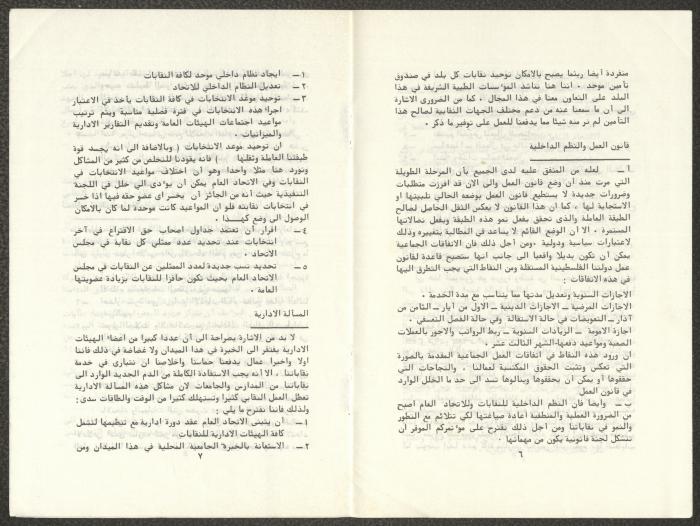 منفردة أيضا ريثما يصبح بالامكان توحيد نقابات كل بلد في صندوق
تأمين موحد . اننا هنا نناشد المؤسسات الطبية الشريفة في هذا
البلد على التعاون معنا في هذا المجال . كما من الضروري الاشارة
الى ان ما سمعنا عنه من دعم مختلف الجهات النقابية لصالح هذا
التأمين لم نر منه شيئا مما يدفعنا للعمل على توفير ما ذكر .
قانون العمل والنظم الداخلية
أ – لعله من المتفق عليه لدى الجميع بأن المرحلة الطويلة
التي مرت منذ ان وضع قانون العمل والى الان قد افرزت متطلبات
وضرورات جديدة لا يستطيع قانون العمل بوضعه الحالي تلبيتها او
الاستجابة لها . كما ان هذا القانون لا يعكس الثقل الحاصل لصالح
الطبقة العاملة والذي تحقق بفعل نمو هذه الطبقة وبفعل نضالاتها
المستمرة . الا أن الوضع القائم لا يساعد في المطالبة بتغييره وذلك
لاعتبارات سياسية ودولية . ومن أجل ذلك فان الاتفاقات الجماعية
يمكن أن تكون بديلا واقعيا الى جانب انها ستصبح قاعدة لقانون
عمل دولتنا الفلسطينية المستقلة ومن النقاط التي يجب التطرق اليها
في هذه الاتفاقات :
الاجازات السنوية وتعديل مدتها مما يتناسب مع مدة الخدمة .
الاجازات المرضية – الاجازات الدينية – الاول من أيار – الثامن من
آذار – التعويضات في حالة الاستقالة وفي حالة الفصل التعسفي .
اجازة الامومة – الزيادات السنوية – ربط الرواتب والاجور بالعملات
الصعبة ومواعيد دفعها– الشهر الثالث عشر .
ان ورود هذه النقاط في اتفاقات العمل الجماعية المقدمة بالصورة
التي تعكس وتثبت الحقوق المكتسبة لعمالنا . والنجاحات التي
حققوها أو يمكن ان يحققوها وينالوها تسد الى حد ما الخلل الوارد
في قانون العمل
ب – وأيضا فان النظم الداخلية للنقابات وللاتحاد العام اصبح
من الضرورة العملية والمنطقية أعادة صياغتها لكي تتلاءم مع التطور
والنمو في نقاباتنا ومن اجل ذلك نقترح على مؤتمركم الموقر أن
تتشكل لجنة قانونية يكون من مهماتها .
٦
١– ايجاد نظام داخلي موحد لكافة النقابات
٢– تعديل النظام الداخلي للاتحاد
٣– توحيد موعد الانتخابات في كافة النقابات يأخذ في الاعتبار
اجراء هذه الانتخابات في فترة فصلية مناسبة ويتم ترتيب
مواعيد اجتماعات الهيئات العامة وتقديم التقارير الادارية
والميزانيات .
ان توحيد موعد الانتخابات ( وبالاضافة الى انه يجسد قوة
طبقتنا العاملة وثقلها ) فانه يقودنا للتخلص من كثير من المشاكل
ونورد هنا مثلا واحدا وهو أن اختلاف مواعيد الانتخابات في
النقابات وفي الاتحاد العام يمكن ان يؤدى الى خلل في اللجنة
التنفيذية حيث أنه من الجائز أن يخسر اى عضو حقه فيها اذا خسر
في انتخابات نقابته فلو ان المواعيد كانت موحدة لما كان بالامكان
الوصول الى وضع كهذا .
٤– اقرار أن تعتمد جداول اصحاب حق الاقتراع في آخر
انتخابات عند تحديد عدد ممثلي كل نقابة في مجلس
الاتحاد .
٥– تحديد نسب جديدة لعدد الممثلين عن النقابات في مجلس
الاتحاد العام بحيث تكون حافزا للنقابات بزيادة عضويتها
العامة .
المسألة الادارية
لا بد من الاشارة بصراحة الى أن عددا كبيرا من أعضاء الهيئات
الادارية يفتقر الى الخبرة في هذا الميدان ولا غضاضة في ذلك فاننا
اولا واخيرا عمال يدفعنا حماسنا واخلاصنا ان نتبارى في خدمة
نقاباتنا . الا أنه يجب الاستفادة الكاملة من الدم الجديد الوارد الى
نقاباتنا من المدارس والجامعات لان مشاكل هذه المسألة الادارية
تعطل العمل النقابي كثيرا وتستهلك كثيرا من الوقت والطاقات سدى :
ولذلك فاننا نقترح ما يلي :
١– أن يتبنى الاتحاد العام عقد دورة ادارية مع تنظيمها لتشمل
كافة الهيئات الادارية للنقابات .
٢– الاستعانة بالخبرة الجامعية المحلية في هذا الميدان ومن
٧